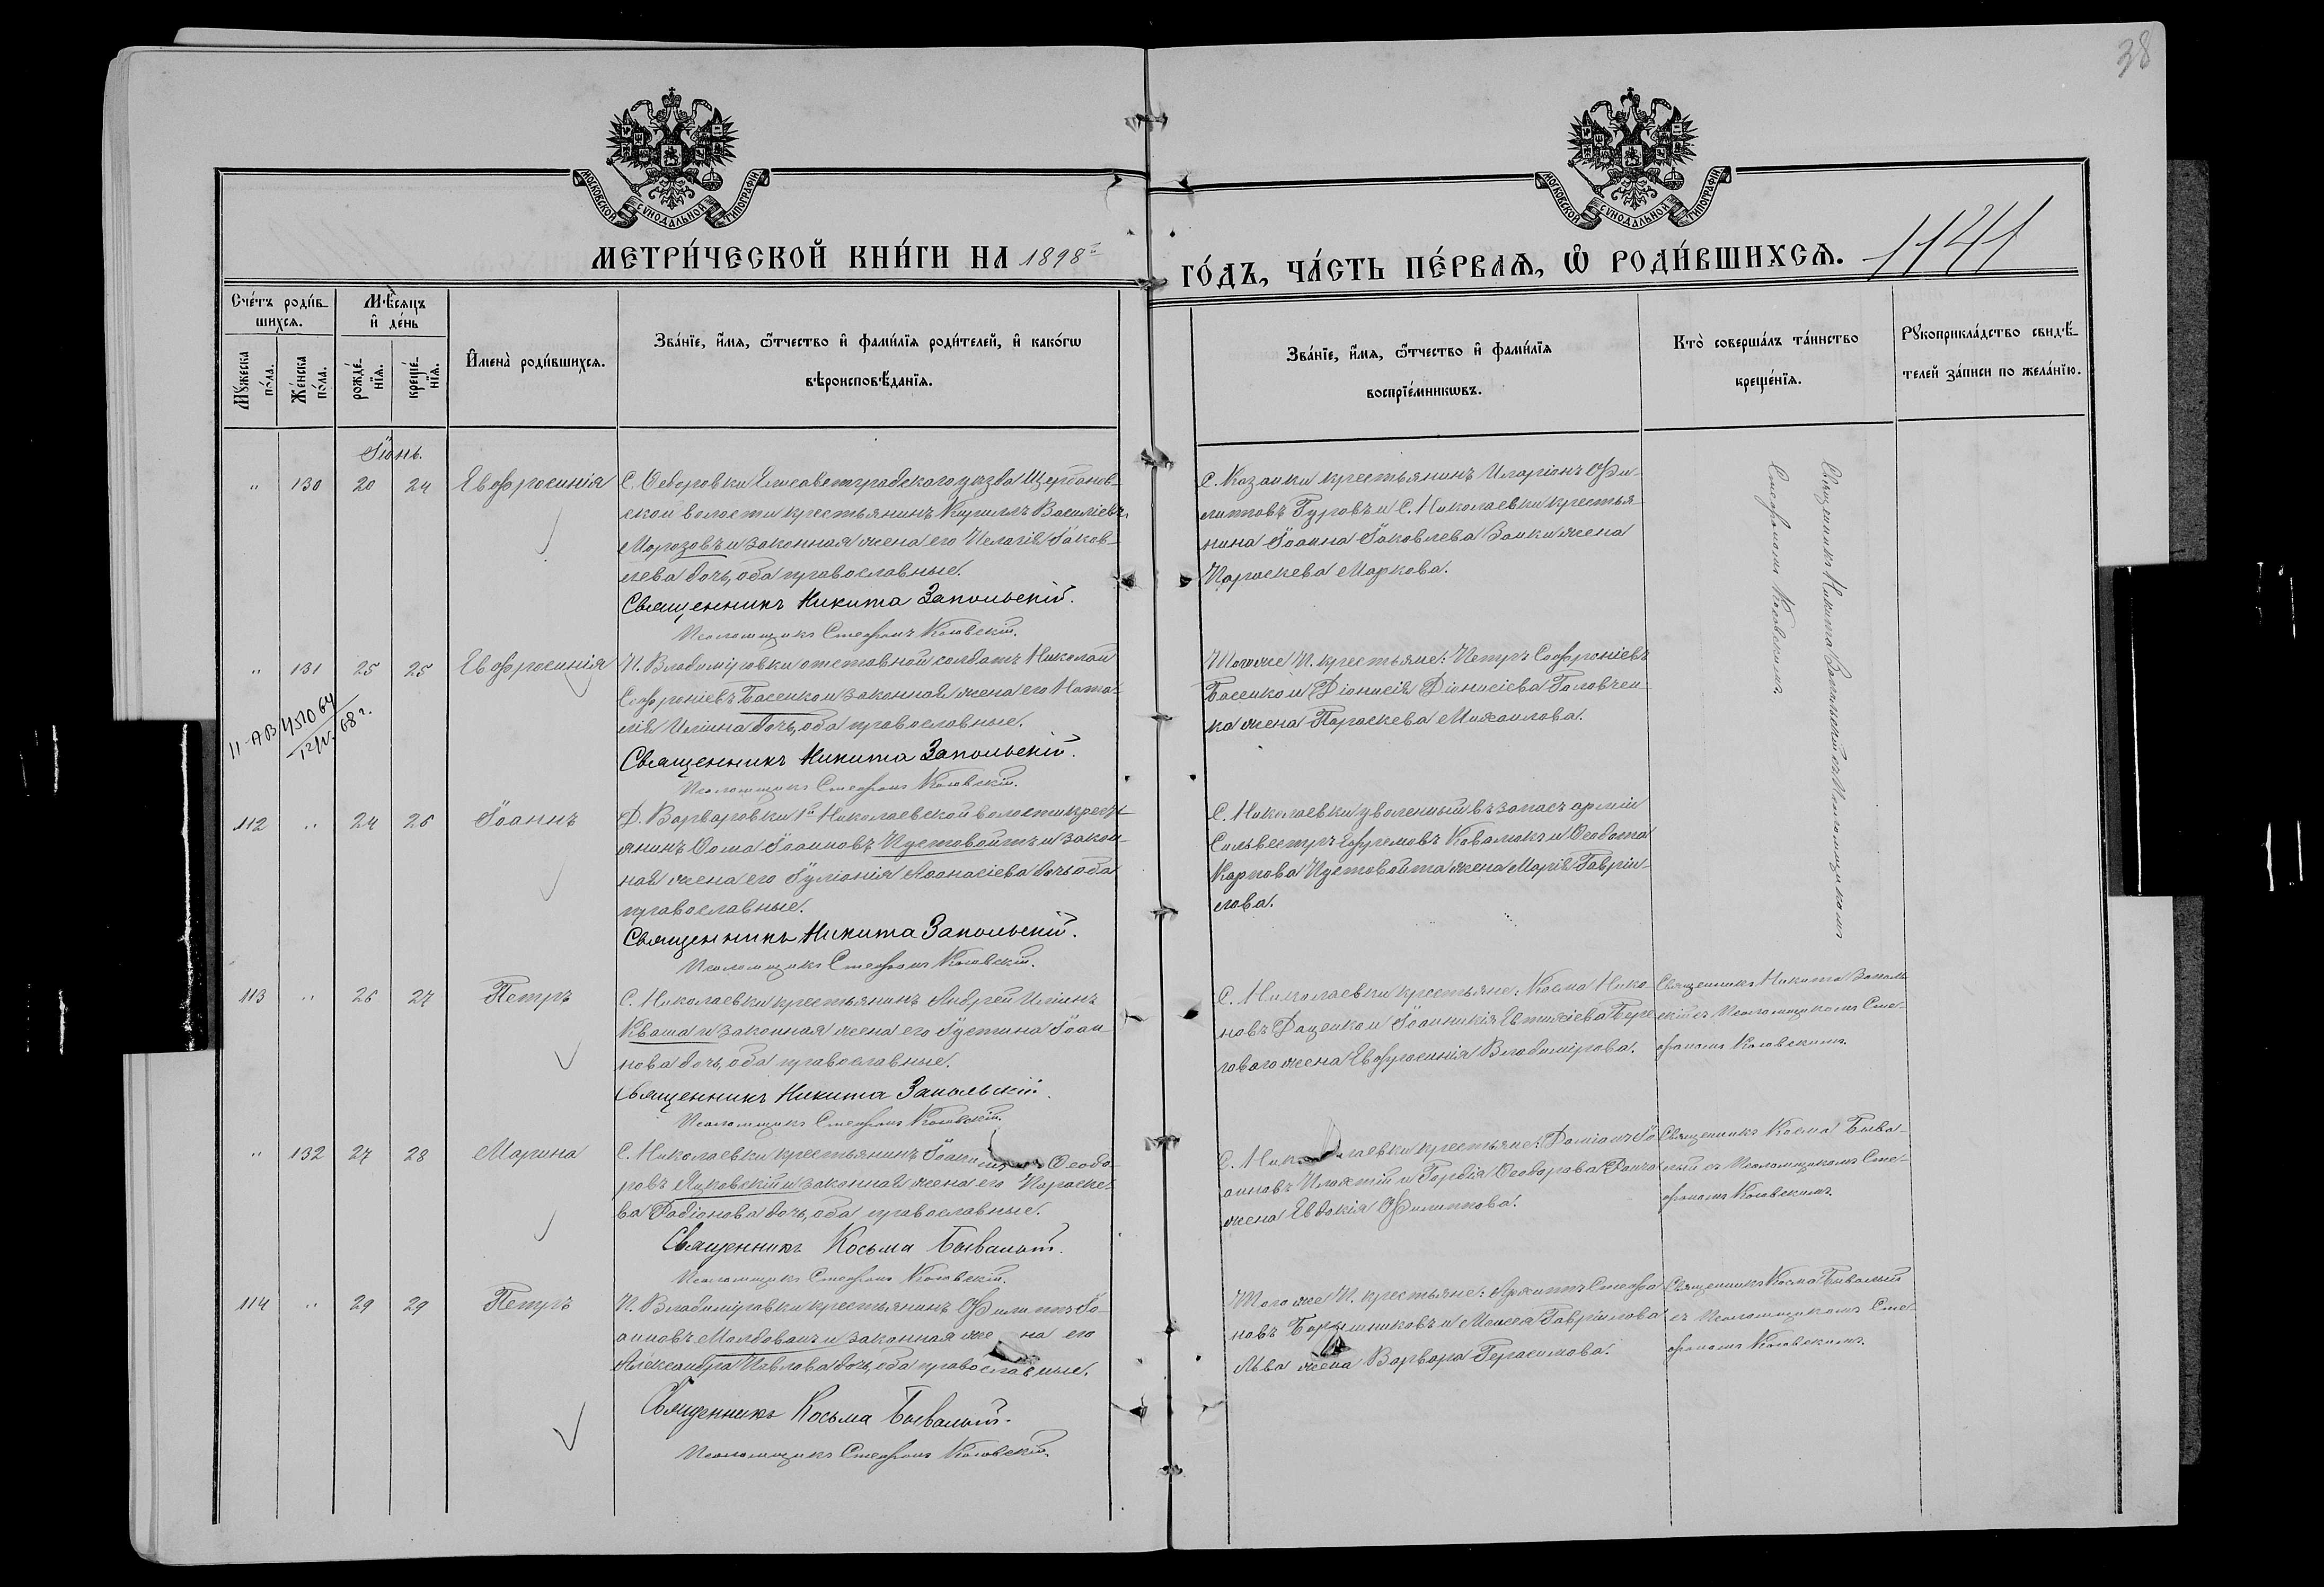 38
МОСКОВСКОЙ СѴНОДАЛЬНОЙ ТИПОГРАФІИ
МОСКОВСКОЙ СѴНОДАЛЬНОЙ ТИПОГРАФІИ
МЕТРИ́ЧЕСКОЙ КНИ́ГИ НА 1898й
ГО́ДЪ, ЧА́СТЬ ПЕ́РВАѦ, Ѡ҆ РОДИ́ВШИХСѦ. 1141
Сче́тъ роди́в-
шихсѧ.
Мѣ́сѧцъ
и҆ де́нь
Мꙋ́жеска по́ла.
Же́нска по́ла.
рожде́-
нїѧ.
креще́-
нїѧ.
И҆мена̀ роди́вшихсѧ.
Зва́нїе, и҆́мѧ, ѻ҆́тчество и҆ фами́лїѧ роди́телей, и҆ како́гѡ
вѣроисповѣ́данїѧ.
Зва́нїе, и҆́мѧ, ѻ҆́тчество и҆ фами́лїѧ
воспрїе́мникѡвъ.
Кто̀ соверша́лъ та́инство
креще́нїѧ.
Рꙋкоприкла́дство свидѣ́-
телей за́писи по жела́нїю.
Іюнь.
" 130 20 24 Евфросинія С. Ѳедоровки Елисаветградскаго уѣзда Щербанов-
ской волости крестьянинъ Кириллъ Василіевъ
Морозовъ и законная жена его Пелагія Іаков-
лева дочь, оба православные.
Священникъ Никита Запольскій.
Псаломщикъ Стефанъ Косовскій.
С. Казанки крестьянинъ Иларіонъ Фи-
липповъ Гуровъ и С. Николаевки крестья-
нина Іоанна Іаковлева Заики жена
Параскева Маркова.
Священникъ Никита Запольскій съ Псаломщикомъ
Стефаномъ Косовскимъ
" 131 25 25 Евфросинія П. Владиміровки отставной солдатъ Николай
Софроніевъ Басенко и законная жена его Ната-
лія Иліина дочь, оба православные.
Священникъ Никита Запольскій.
Псаломщикъ Стефанъ Косовскій.
Того же П. крестьяне: Петръ Софроніевъ
Басенко и Діонисія Діонисіева Головчен-
ка жена Параскева Михаилова.
II-АВ 451064
12/V. 68 г.
112 " 24 26 Іоаннъ Д. Варваровки 1й Николаевской волости крест-
янинъ Ѳома Іоанновъ Пустовойтъ и закон-
ная жена его Іуліанія Аѳанасіева дочь, оба
православные.
Священникъ Никита Запольскій.
Псаломщикъ Стефанъ Косовскій.
С. Николаевки уволенный въ запасъ арміи
Сильвестръ Ефремовъ Ковалюкъ и Ѳеодота
Карпова Пустовойта жена Марія Гавріи-
лова.
113 " 26 27 Петръ С. Николаевки крестьянинъ Андрей Иліинъ
Кваша и законная жена его Іустина Іоан-
нова дочь, оба православные.
Священникъ Никита Запольскій.
Псаломщикъ Стефанъ Косовскій.
С. Николаевки крестьяне: Косма Нико-
новъ Даценко и Іоанникія Евтихіева Бере-
гового жена Евфросинія Владимірова.
Священникъ Никита Заполь-
скій съ Псаломщикомъ Сте-
фаномъ Косовскимъ.
" 132 27 28 Марина С. Николаевки крестьянинъ Ѳеодо-
ровъ Яцковскій и законная жена его Параске-
ва Радіонова дочь, оба православные.
Священникъ Косьма Бывалый.
Псаломщикъ Стефанъ Косовскій.
С. Николаевки крестьяне: Даміанъ Іо-
анновъ и Гордія Ѳеодорова
жена Евдокія Филиппова.
Священникъ Косма Быва-
лый съ Псаломщикомъ Сте-
фаномъ Косовскимъ.
114 " 29 29 Петръ П. Владиміровки крестьянинъ Филиппъ Іо-
анновъ Молдованъ и законная жена его
Александра Павлова дочь, оба православные.
Священникъ Косьма Бывалый.
Псаломщикъ Стефанъ Косовскій.
Того же П. крестьяне: Стефа-
новъ и Моисея Гавріилова
Льва жена Варвара Герасимова.
Священникъ Косма Бывалый
съ Псаломщикомъ Сте-
фаномъ Косовскимъ.